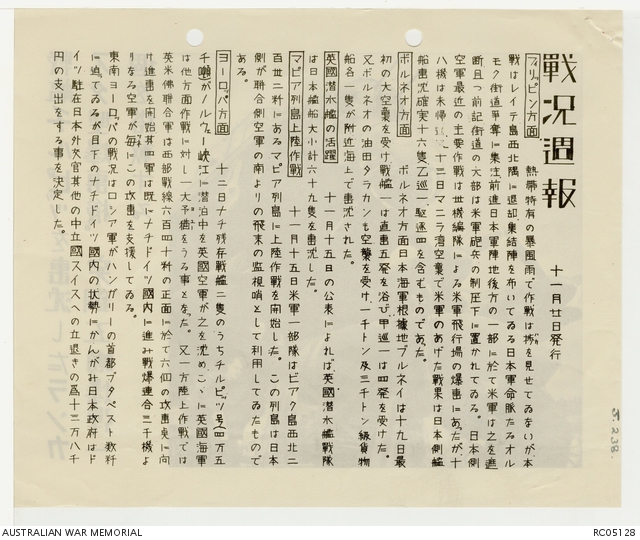 戰況週報
十一月廿日発行
フィリピン方面
熱帯特有の暴風雨で作戦は渉を見せてゐないが、本
戦はレイテ島西北隅に退却集結陣を布いてゐる日本軍命脈たるオル
モク街道爭奪に集注前進日本軍陣地後方の一部に於て米軍は之を遮
断且つ前記街道の大部は米軍砲兵の制圧下に置かれてゐる。日本側
空軍最近の主要作戦は卅機編隊による米軍飛行場の爆击にあったが十
八機は未帰還、十三日マニラ湾空襲で米軍のあげた戦果は日本側艦
船击沈確実十六隻(乙巡一、駆逐四を含むものであった。
ボルネオ方面
ボルネオ方面日本海軍根據地ブルネイは十九日最
初の大空襲を受け戦艦一は直击五発を浴び、甲巡一は四発を受けた。
又ボルネオの油田タラカンも空襲を受け、一千トン及三千トン級貨物
船各一隻が附近海上で击沈された。
英國潜水艦の活躍
十一月十五日の公表によれば、英國潜水艦戦隊
は日本艦船大小計六十九隻を击沈した。
マピア列島上陸作戦
十一月十五日米軍一部隊はビアク島西北二
百卅二粁にあるマピア列島に上陸作戦を開始した。この列島は日本
側が聯合側空軍の南よりの飛来の監視哨として利用してゐたもので
ある。
ヨーロッパ方面
十二日ナチ残存戦艦二隻のうちチルピツ号(四万五
千噸)がノルウェー峡江に潜泊中を英國空軍が之を沈めこゝに英國海軍
は他方面作戦に対し一大予猶をうる事となった。又一方陸上作戦では
英米佛聯合軍は西部戦線六百四十粁の正面に於て六個の攻击奌に向
け進击を開始其四軍は既にナチドイツ國内に進み戦爆連合三千機よ
りなる空軍が毎にこの攻击を支援してゐる。
東南ヨーロッパの戦況はロシア軍がハンガリーの首都ブタペスト数粁
に迫ってゐるが目下のナチドイツ國内の状勢にかんがみ日本政府はド
イツ駐在日本外交官其他の中立國スイスへの立退きの爲十二万八千
円の支出をする事を決定した。
J.238.
AUSTRALIAN WAR MEMORIAL
RC05128